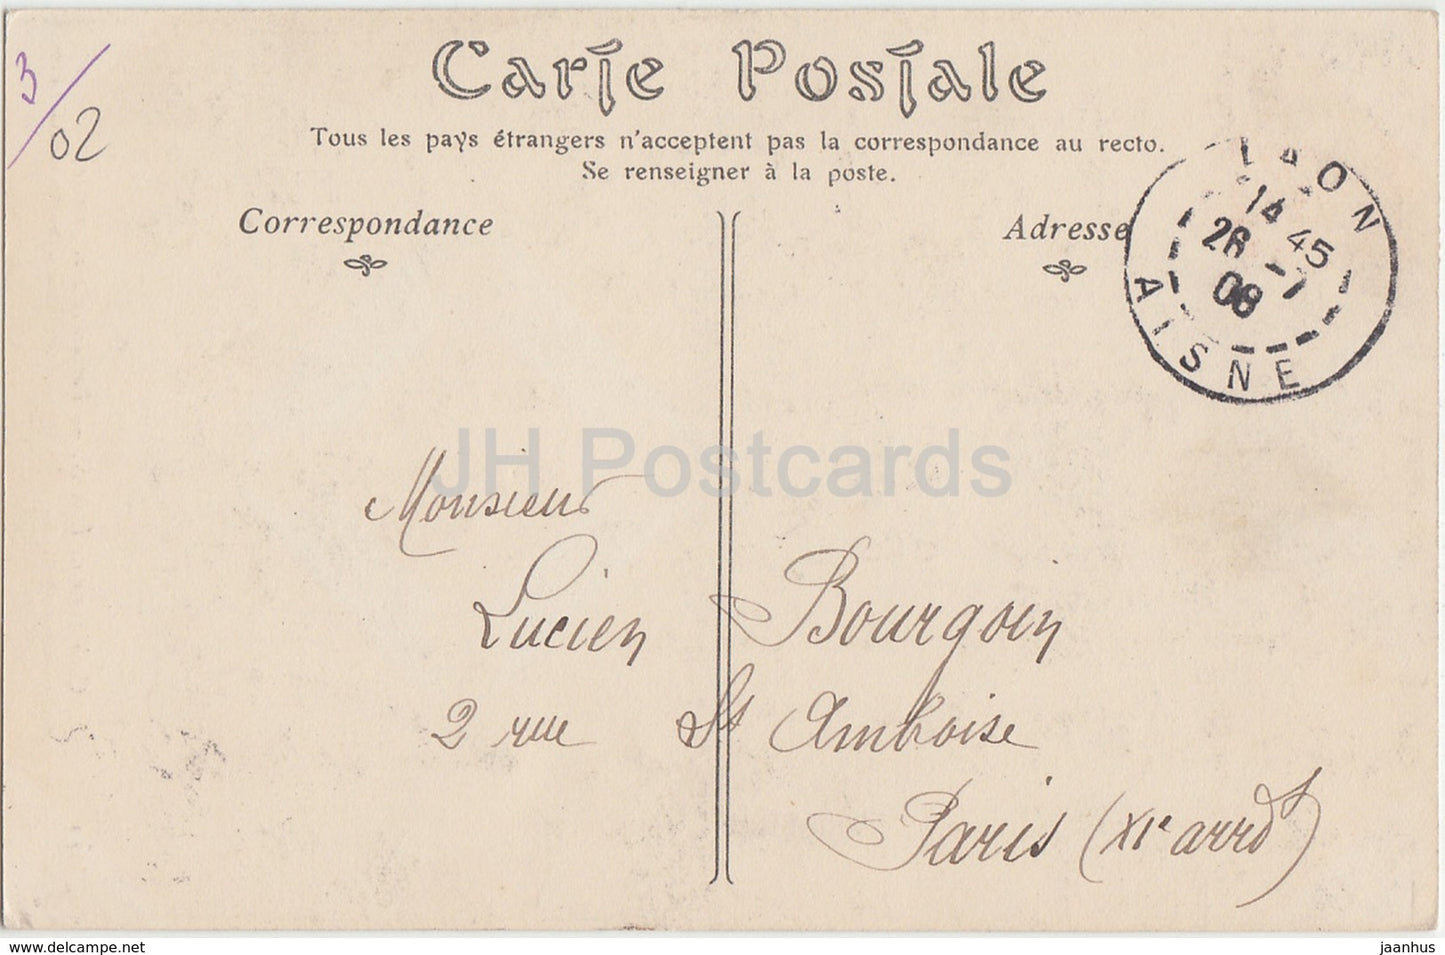 3/02
Carte Postale
Tous les pays étrangers n'acceptent pas la correspondance au recto.
Se renseigner à la poste.
Correspondance
Adresse
LAON
14 45
26 - 7
08
AISNE
JH Postcards
Monsieur
Lucien Bourgoin
2 rue St Amboise
Paris (XIe arrdt)
www.delcampe.net
jaanhus